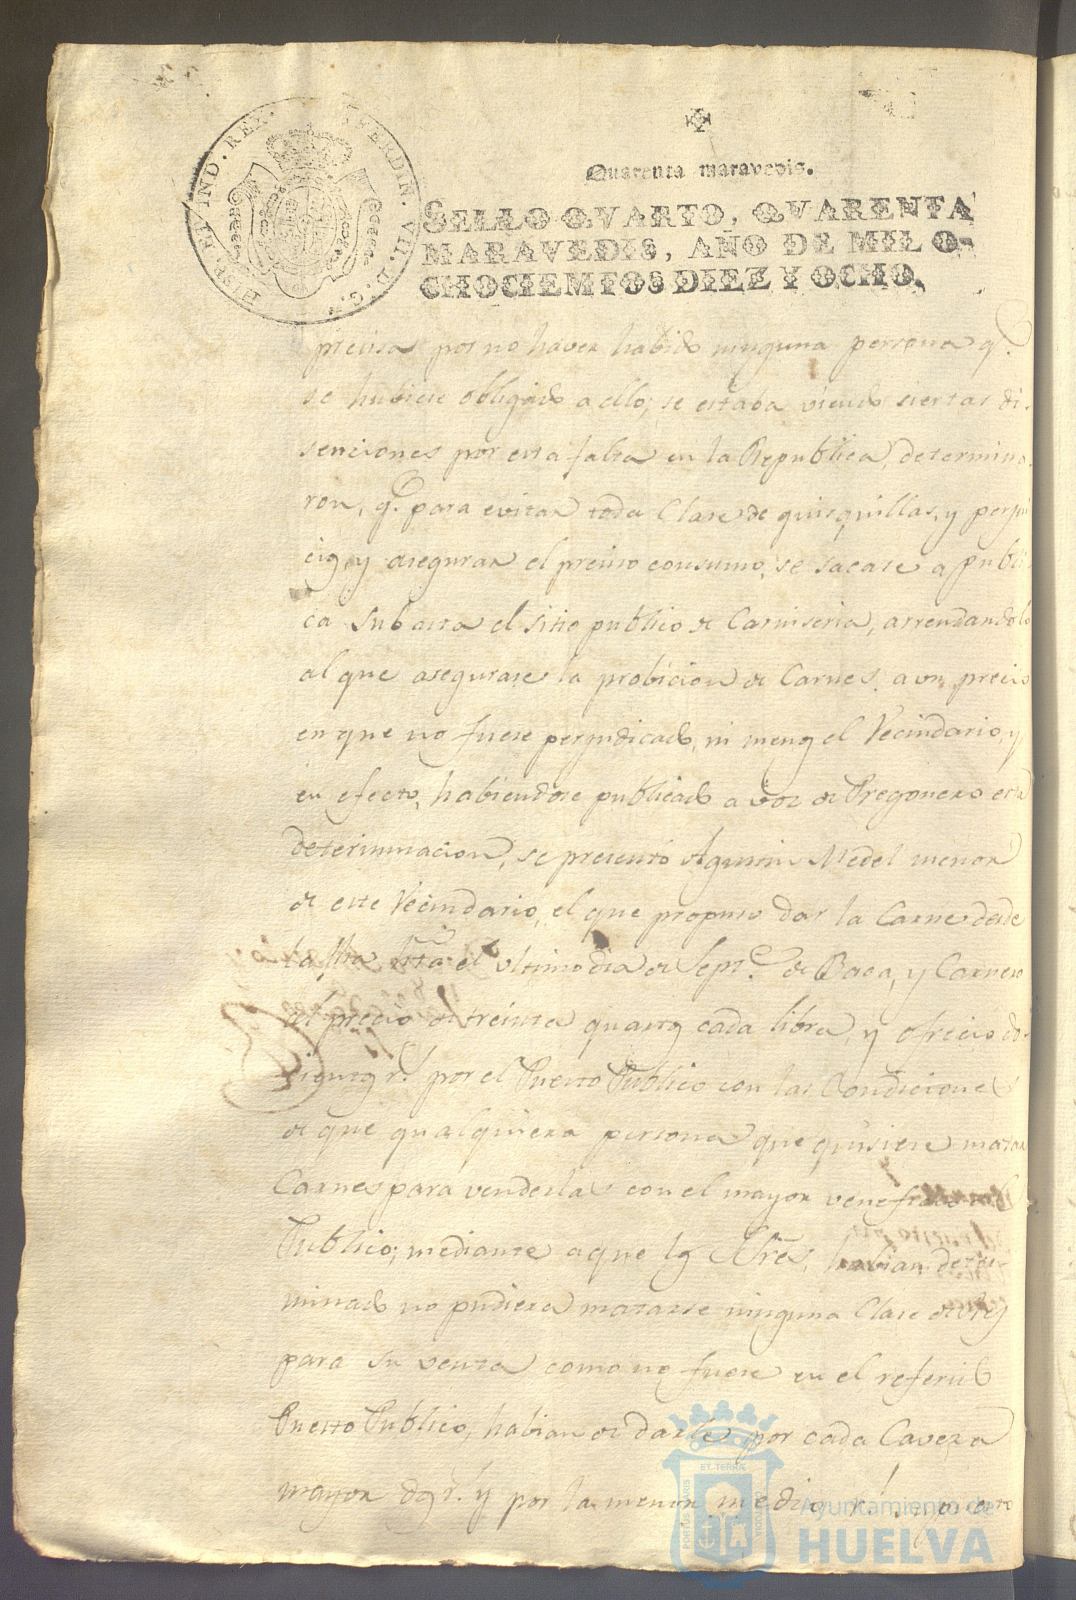 HISP. ET IND. REX. FERDIN. VII. D. G.
Quarenta maravedis.
SELLO QVARTO, QVARENTA
MARAVEDIS, AÑO DE MIL O-
CHOCIENTOS DIEZ Y OCHO.
precisa por no haver habido ninguna persona q.e
se hubiese obligado a ello; se estaba viendo siertas di-
senciones por esta falta en la Republica, determina-
ron, q.e para evitar toda Clase de quisquillas, y perjui
cios, y asegurar el preciso consumo, se sacase a publi
ca Subasta el sitio publico de Carniseria, arrendandolo
al que asegurase la probicion de Carnes a un precio
en que no fuese perjudicado, ni menos el Vecindario, y
en efecto, habiendose publicado a voz de Pregonero esta
determinacion, se presentó Agustin Medel menor
de este Vecindario, el que propuso dar la Carne desde
la fha hta el ultimo dia de Sept.e de Baca, y Carnero
al precio de treinta quartos cada libra, y ofrecio do-
sientos r.s por el Puesto Publico con las Condiciones
de que qualquiera persona que quisiere matar
Carnes para venderlas con el mayor veneficio al
Publico; mediante a que los Sres, habian deter-
minado no pudiera matarse ninguna Clase de res
para su venta como no fuese en el referido
Puesto Publico, habian de darle por cada Caveza
mayor dos r.s y por la menor medio r.l
Ayuntamiento de
HUELVA